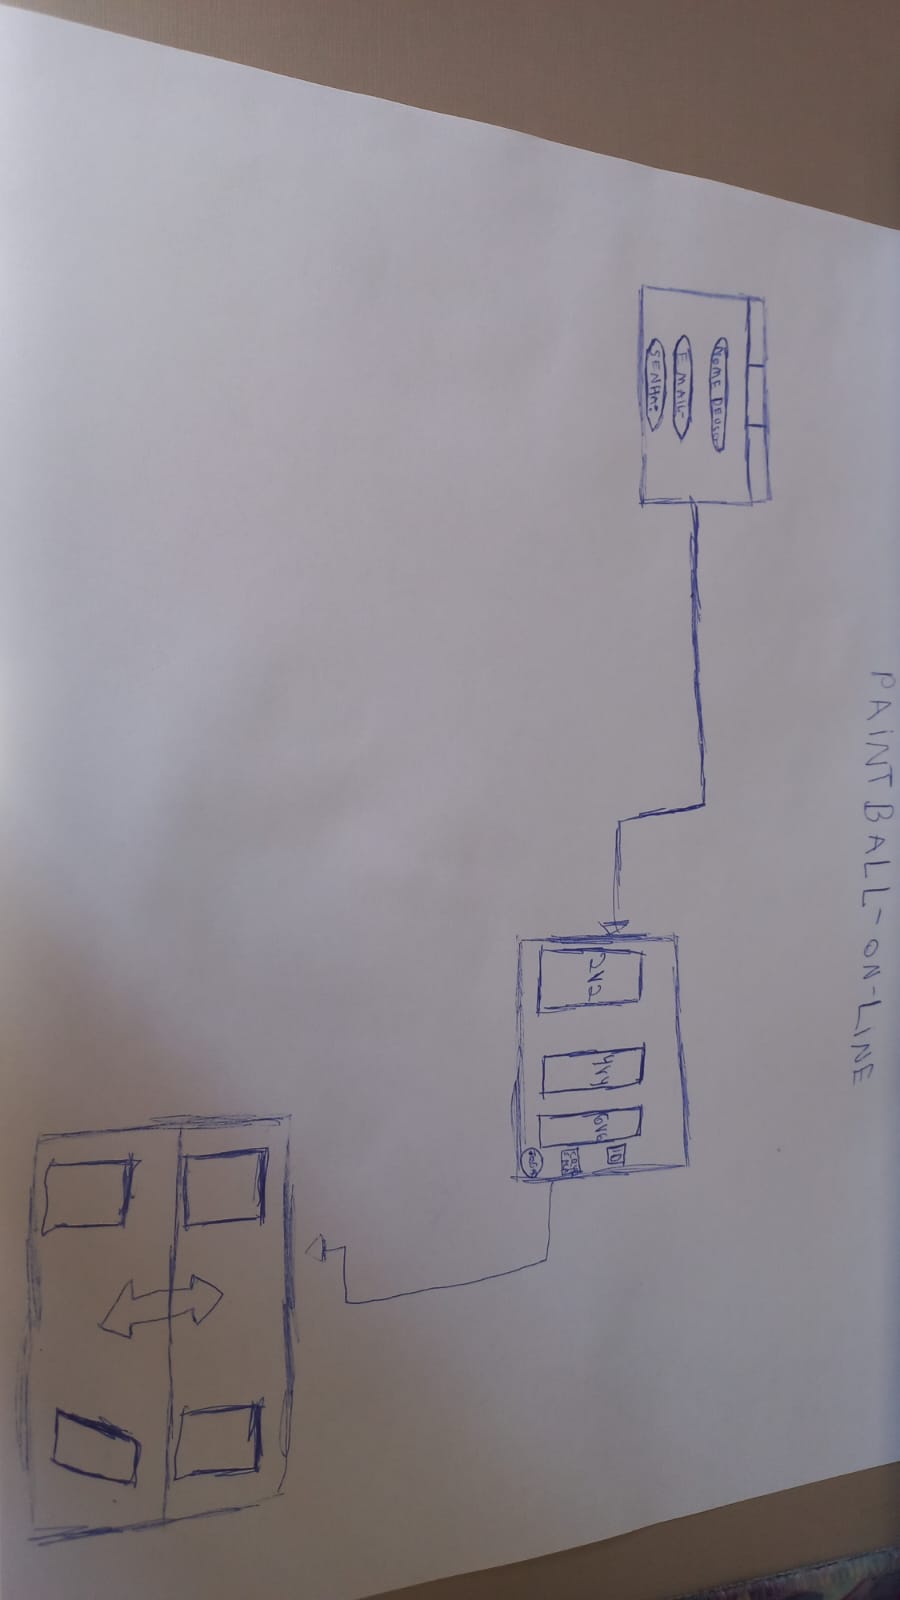 PAINTBALL-ON-LINE
NOME DE USO
EMAIL
SENHA:
2V2
4V4
6V6
ID